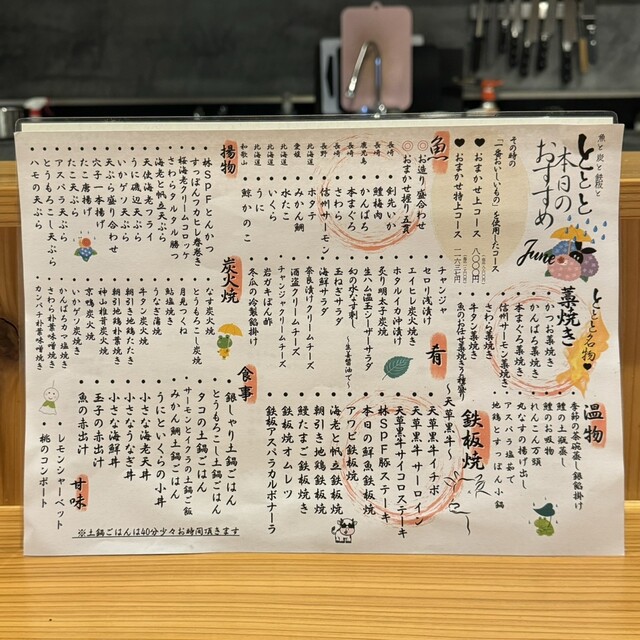 魚と炭と鉄板と
ととと
本日の
おすすめ
June
その時の
「一番おいしいもの」を使用したコース
♥おまかせ上コース
♥おまかせ特上コース
魚
◎お造り盛合わせ
◎おまかせ握り五貫
長崎
剣先いか
長崎
鱧梅肉
かんぱち
本まぐろ
長崎
さわら
長野
信州サーモン
北海道
ホタテ
愛媛
みかん鯛
北海道
水たこ
北海道
いくら
北海道
うに
和歌山
鯨かのこ
揚物
林SPFとんかつ
すっぽんフカヒレ春巻き
桜海老クリームコロッケ
さわらタルタル勝つ
海老と帆立天ぷら
天使海老フライ
うに磯辺天ぷら
いかげそ天ぷら
天ぷら盛り合わせ
穴子一本揚げ
たこ唐揚げ
たこ天ぷら
アスパラ天ぷら
とうもろこし天ぷら
ハモの天ぷら
ととと名物♥
藁焼き
かつお藁焼き
かんぱち藁焼き
本まぐろ藁焼き
信州サーモン藁焼き
さわら藁焼き
牛タン藁焼き
魚のお任せ藁焼き三種盛り
肴
チャンジャ
セロリ浅漬け
エイヒレ炭火焼き
ホタルイカ沖漬け
炙り明太子
生ハム温玉シーザーサラダ
幻の水なす刺し
～生姜醤油で～
海鮮サラダ
玉ねぎサラダ
奈良漬けクリームチーズ
酒盗クリームチーズ
チャンジャクリームチーズ
岩ガキぽん酢
冬瓜の冷製餡掛け
炭火焼
うす炭火焼
とうもろこし炭火焼
月見つくね
鮎塩焼き
うなぎ蒲焼
牛タン炭火焼
朝引き地鶏たたき
朝引き地鶏朴葉焼
神山椎茸炭火焼
京鴨炭火焼
いかゲソ炭火焼
かんぱちカマ塩焼き
さわら朴葉味噌焼き
カンパチ朴葉味噌焼き
温物
季節の茶碗蒸し銀餡掛け
鱧の土瓶蒸し
鱧のお吸物
れんこん万頭
丸なすの揚げ出し
アスパラ塩茹で
地鶏とすっぽん小鍋
鉄板焼
～天草黒牛～
天草黒牛イチボ
天草黒牛サーロイン
天草黒牛サイコロステーキ
林SPF豚ステーキ
本日の鮮魚鉄板焼
アワビ鉄板焼
海老と帆立鉄板焼
朝引き地鶏鉄板焼
鱧たまご鉄板焼き
鉄板焼オムレツ
鉄板アスパラカルボナーラ
食事
銀しゃり土鍋ごはん
とうもろこし土鍋ごはん
タコの土鍋ごはん
サーモンとイクラの土鍋ご飯
みかん鯛土鍋ごはん
うにといくらの小丼
小さな海老天丼
小さなうなぎ丼
小さな海鮮丼
玉子の赤出汁
魚の赤出汁
甘味
レモンシャーベット
桃のコンポート
※土鍋ごはんは40分少々お時間頂きます